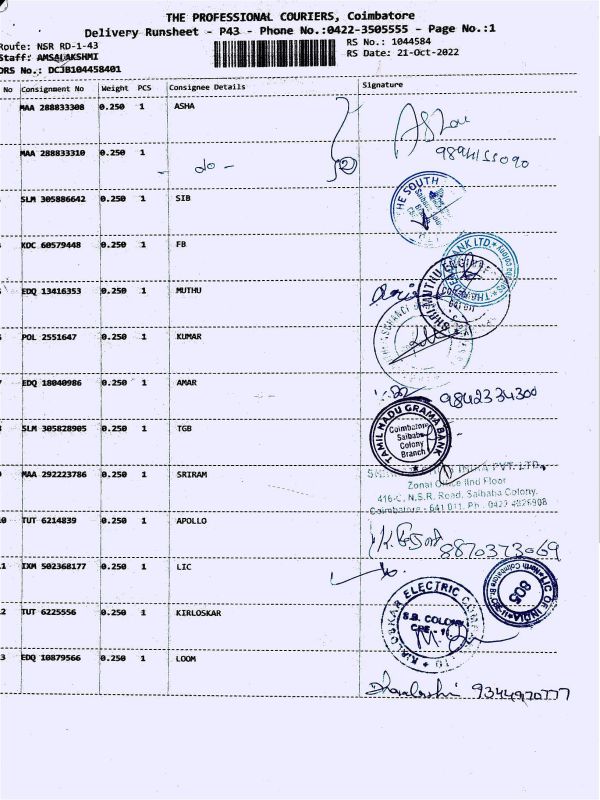 THE PROFESSIONAL COURIERS, Coimbatore
Delivery Runsheet - P43 - Phone No.:0422-3505555 - Page No.:1
Route: NSR RD-1-43 RS No.: 1044584
Staff: AMSALAKSHMI RS Date: 21-Oct-2022
DRS No.: DCJB104458401
No Consignment No Weight PCS Consignee Details Signature
MAA 288833308 0.250 1 ASHA Asha
9894155090
MAA 288833310 0.250 1 - do - 2
SLM 305886642 0.250 1 SIB THE SOUTH
KOC 60579448 0.250 1 FB BANK LTD.
EDQ 13416353 0.250 1 MUTHU SHRI MUTHU
641 011
POL 2551647 0.250 1 KUMAR
EDQ 18040986 0.250 1 AMAR 9842334300
SLM 305828905 0.250 1 TGB TAMIL NADU GRAMA BANK
Coimbatore
Saibaba
Colony
Branch
MAA 292223786 0.250 1 SRIRAM INDIA PVT. LTD.,
Zonal Office IInd Floor
416-C, N.S.R. Road, Saibaba Colony,
Coimbatore - 641 011. Ph : 0422 4326908
10 TUT 6214839 0.250 1 APOLLO 8870373069
11 IXM 502368177 0.250 1 LIC LIC OF INDIA
805
12 TUT 6225556 0.250 1 KIRLOSKAR KIRLOSKAR ELECTRIC
S.B. COLONY
CBE - 
13 EDQ 10879566 0.250 1 LOOM 9344970777